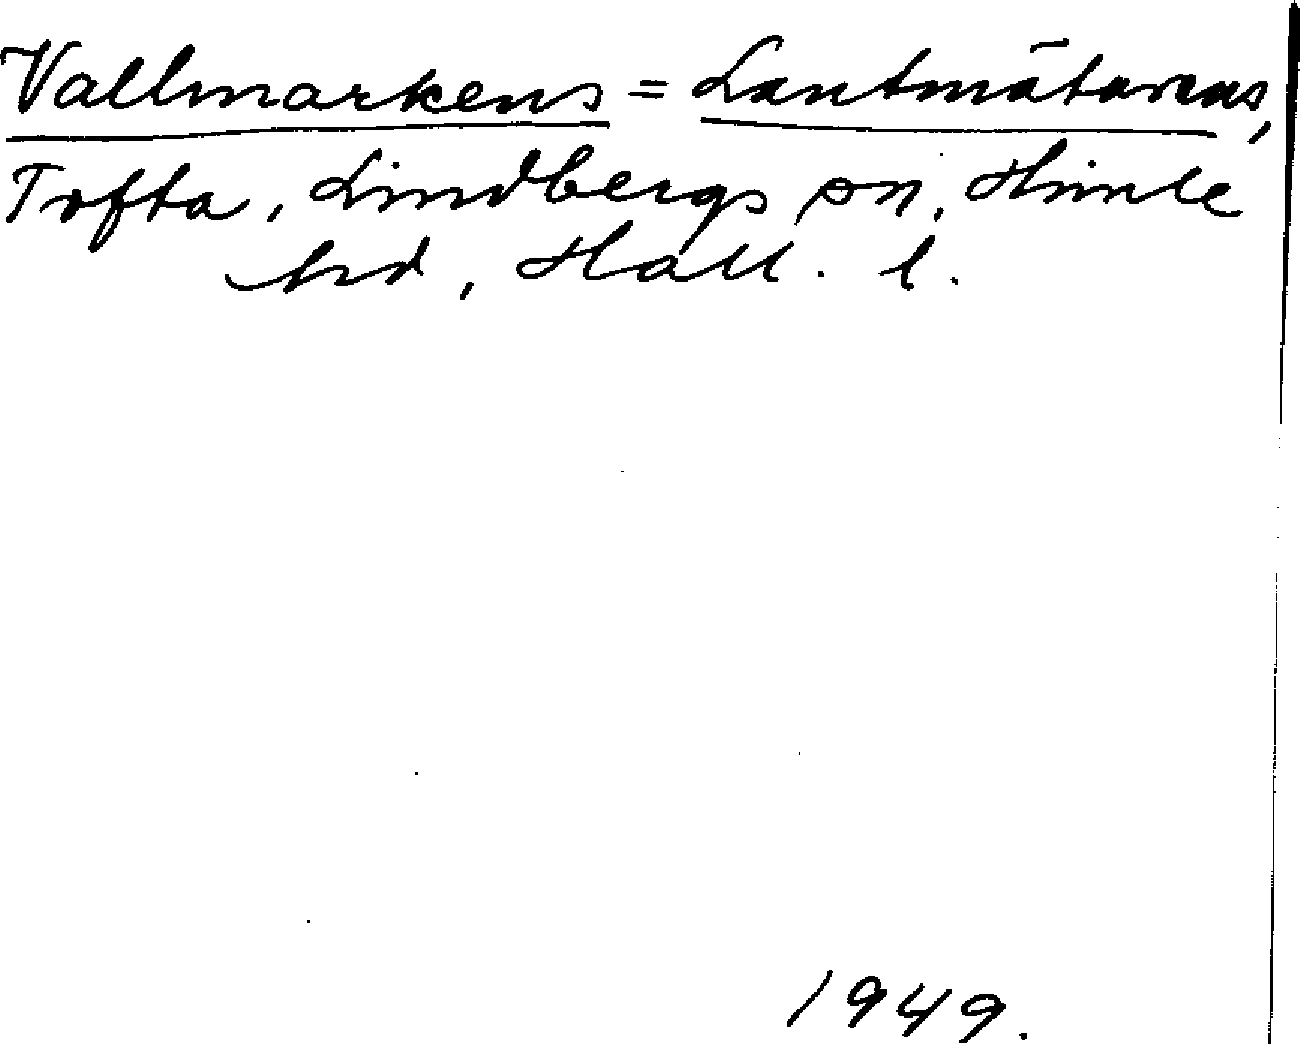 Vallmarkens = Lantmätarens,
Tofta, Lindbergs sn, Himle
hd, Hall. l.
1949.